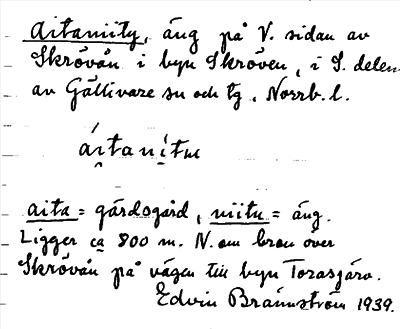 Aitaniity, äng på V. sidan av
Skröván i byn Skröven, i S. delen
av Gällivare sn och tg, Norrb. l.
áitanítɯ
aita = gärdsgård, niitu = äng.
Ligger ca 800 m. N. om bron över
Skröván på vägen till byn Torasjärv.
Edvin Brännström 1939.